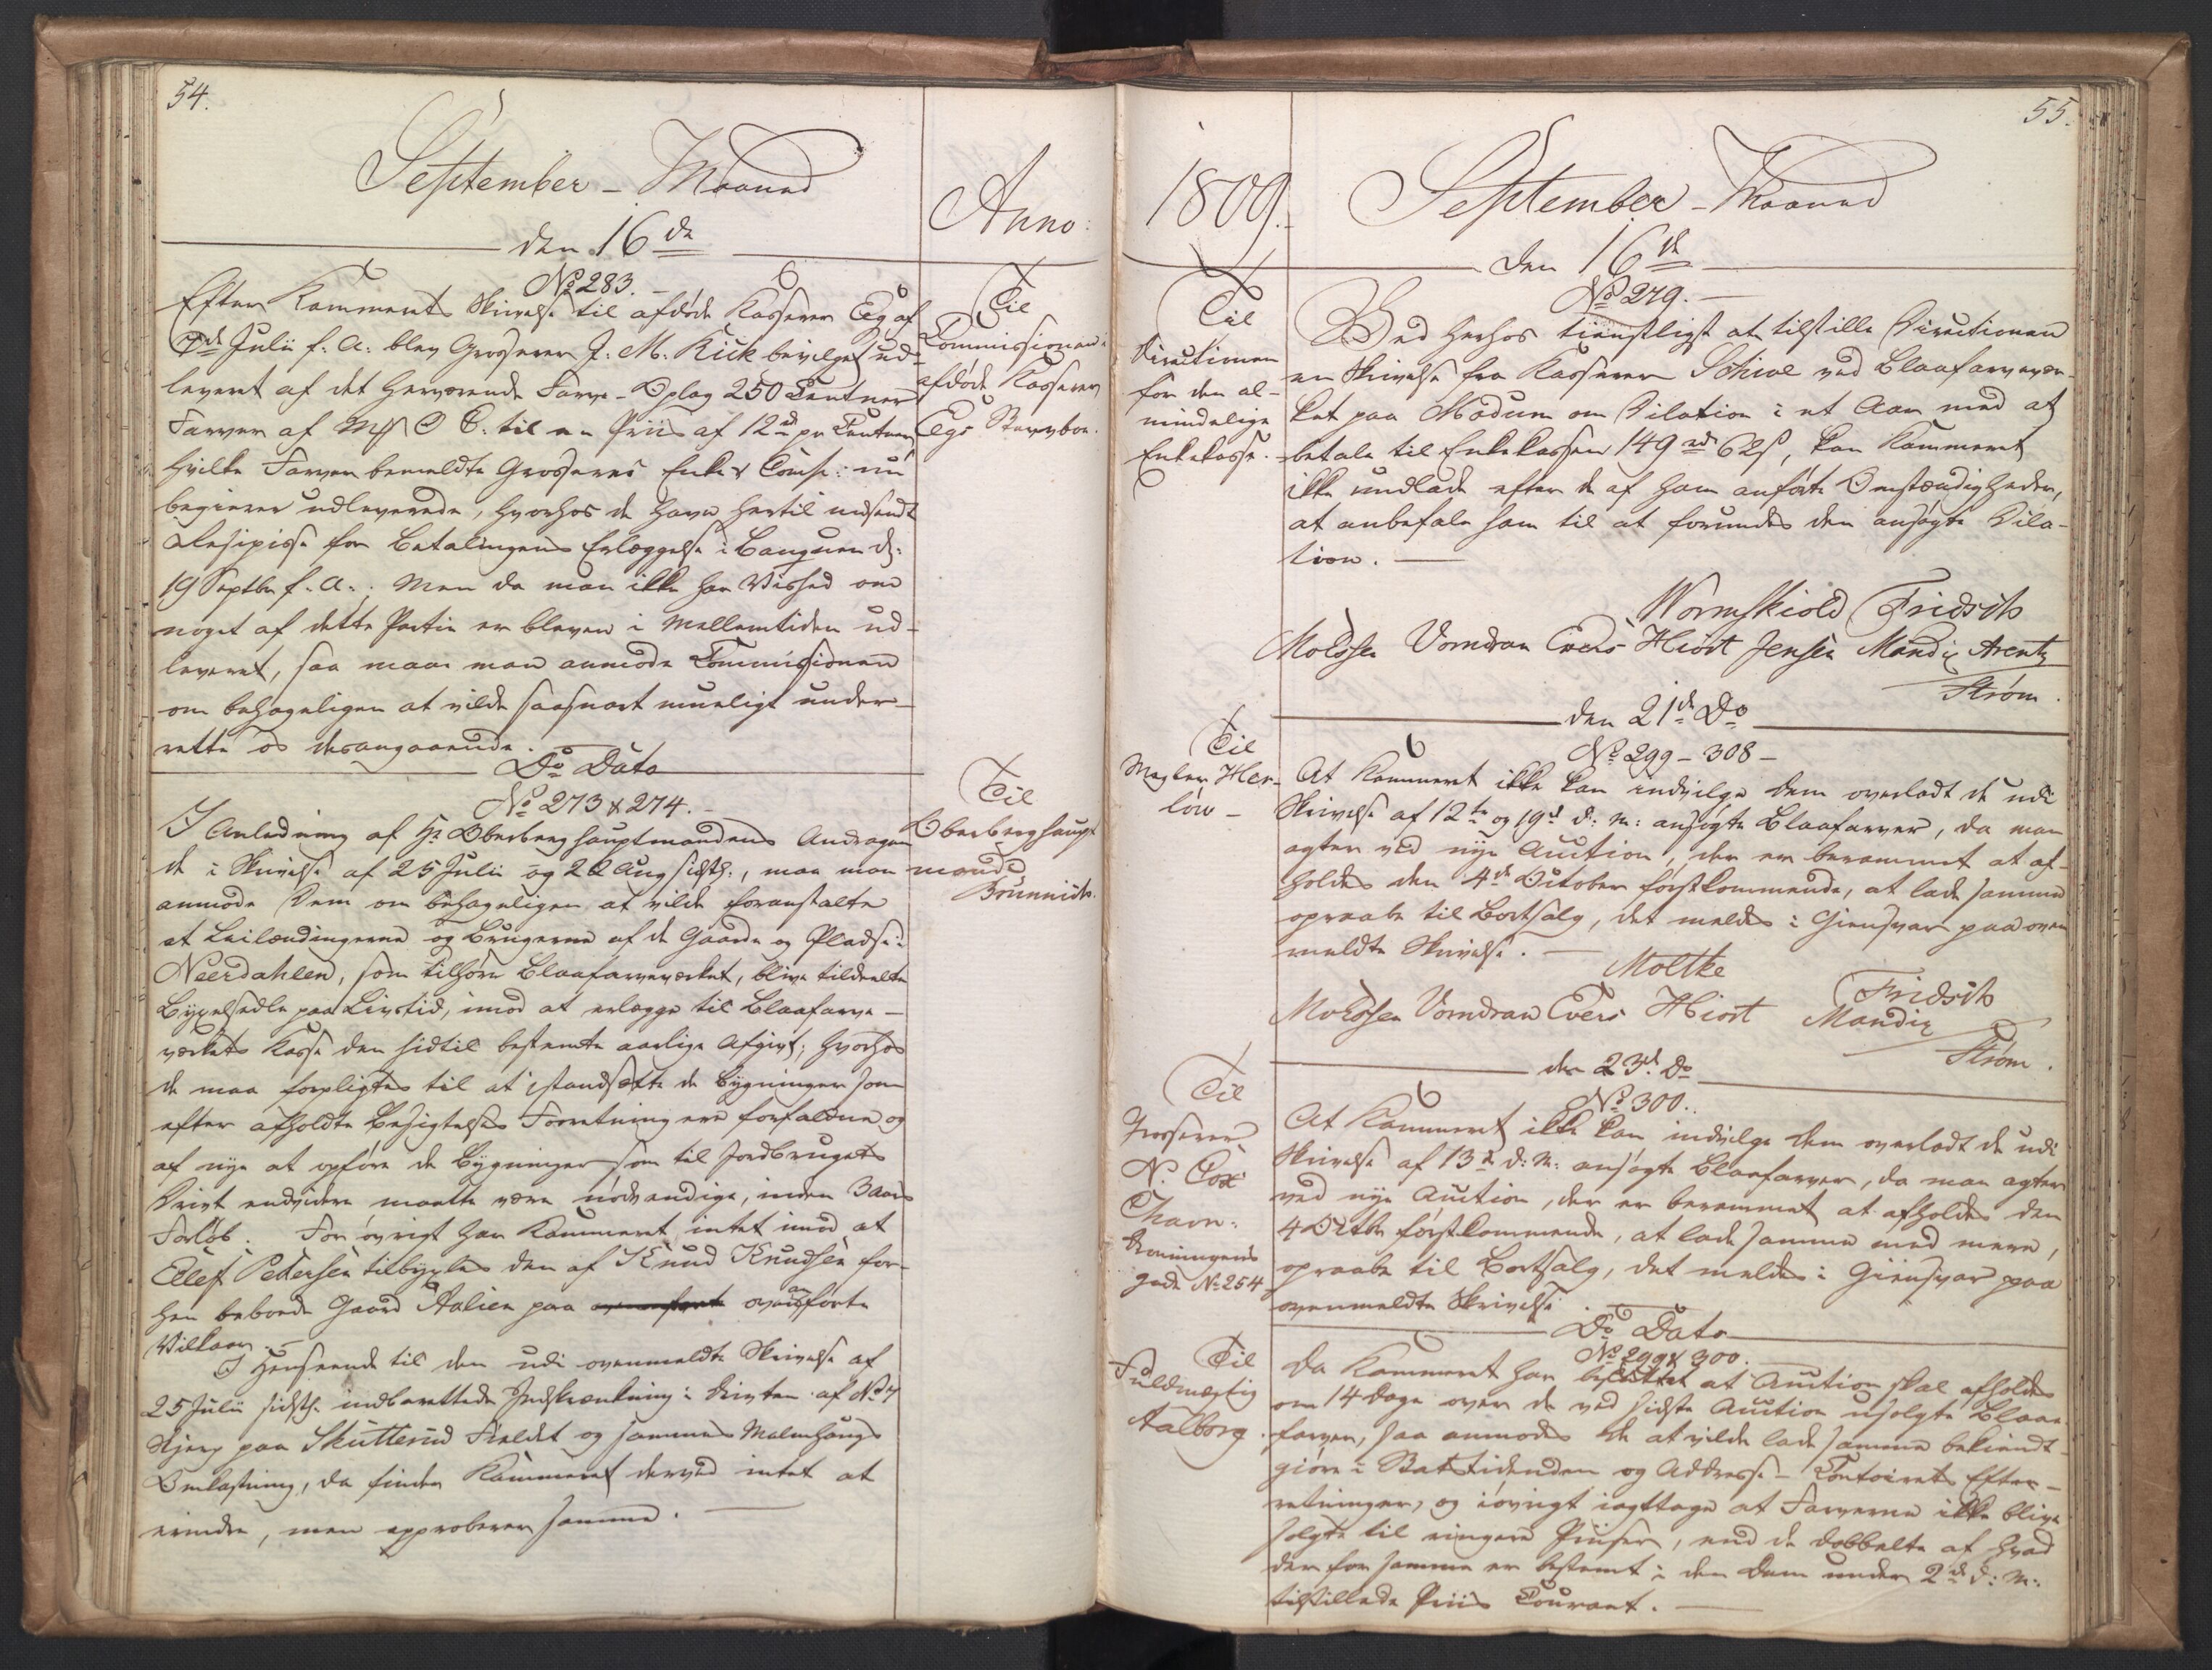 54.
September - Maaned
Anno:
den 16de
No 283.
Efter Kammerets Skrivelse til afdøde Kasserer Eeg af
7de Julii f. A: blev Grosserer J. M. Kück bevilget ud-
leveret af det herværende Farve-Oplag 250 Centner
Farver af M O C. til en Priis af 12 rd pr Centner
hvilke Farver bemeldte Grosseres Enke & Comp: nu
begierer udleverede, hvorhos de have hertil indsendt
Resipisse for Betalingens Erlæggelse i Banquen d:
19 Septbr f. A.; Men da man ikke har Vished om
noget af dette Partie er bleven i Mellemtiden ud-
leveret, saa maae man anmode Commissionen
om behageligen at vilde saasnart mueligt under-
rette os desangaaende.
Til
Commissionen i
afdøde Kasserer
Eegs Stervboe.
Do Dato
No 273 & 274.
I Anledning af Hr Oberberghauptmandens Andragen-
de i Skrivelse af 25 Julii og 22 Aug sidstl., maa man
anmode Dem om behageligen at vilde foranstalte
at Leilændingerne og Brugerne af de Gaarde og Pladse i
Neerdahlen, som tilhøre Blaafarveværket, blive tildeelte
Bygselsedle paa Livstid, imod at erlægge til Blaafarve-
værkets Kasse den hidtil bestemte aarlige Afgivt; hvorhos
de maa forpligtes til at istandsætte de Bygninger som
efter afholdte Besigtelses Forretning ere forfaldne og
af nye at opføre de Bygninger som til Jordbrugets
Drivt endvidere maatte være nødvendige, inden 3 Aars
Forløb. For øvrigt har Kammeret intet imod at
Ellef Pedersen tilbygsles den af Knud Knudsen for-
hen beboede Gaard Aalien paa ovenanførte
Vilkaar.
I Henseende til den udi ovenmeldte Skrivelse af
25 Julii sidstl. indberettede Indskrænkning i Driften af No 7
Skjerp paa Skutterud Fieldet og sammes Malmhaugs
Omlastning, da finder Kammeret derved intet at
erindre, men approberer samme.
Til
Oberberghaupt-
mand
Brünnich.
55.
1809.
September - Maaned
den 16de
No 279.
Ved herhos tienstligst at tilstille Directionen
en Skrivelse fra Kasserer Schive ved Blaafarvevær-
ket paa Modum om Dilation i et Aar med at
betale til Enkekassen 149 rd 62 s, kan Kammeret
ikke undlade efter de af ham anførte Omstændigheder,
at anbefale ham til at forundes den ansøgte Dila-
tion.
Til
Directionen
for den al-
mindelige
Enkekasse.
Wormskiold Fridsch
Moldsen Vorndran Evers Hiort Jensen Mandix Arentz
Strøm.
den 21de Do
No 299 - 308 -
At Kammeret ikke kan indvilge Dem overladt de udi
Skrivelse af 12te og 19d d: M: ansøgte Blaafarver, da man
agter ved nye Auction, der er berammet at af-
holdes den 4de October førstkommende, at lade samme
opraabe til Bortsalg, det meldes i Giensvar paa oven
meldte Skrivelse.
Til
Megler Her-
løw -
Moltke
Fridsch
Moldsen Vorndran Evers Hiort Mandix
Strøm.
den 23d. Do
No 300.
At Kammeret ikke kan indvilge Dem overladt de udi
Skrivelse af 13de d: M: ansøgte Blaafarver, da man agter
ved nye Auction, der er berammet at afholdes den
4 Octbr førstkommende, at lade samme med mere,
opraabe til Bortsalg, det meldes i Giensvar paa
ovenmeldte Skrivelse.
Til
Grosserer
N. Cox
Chavn:
Dronningens
gade No 254
Do Dato
No 299 & 300.
Da Kammeret har besluttet at Auction skal afholdes
om 14 Dage over de ved sidste Auction usolgte Blaae
farver, saa anmodes De at vilde lade samme bekiendt-
giøre i Statstidenden og Addresse-Contoirets Efter-
retninger, og iøvrigt iagttage at Farverne ikke blive
solgte til ringere Priser, end de dobbelte af hvad
der for samme er bestemt i den Dem under 2de d: M:
tilstillede Priis Courant.
Til
Fuldmægtig
Aalborg.